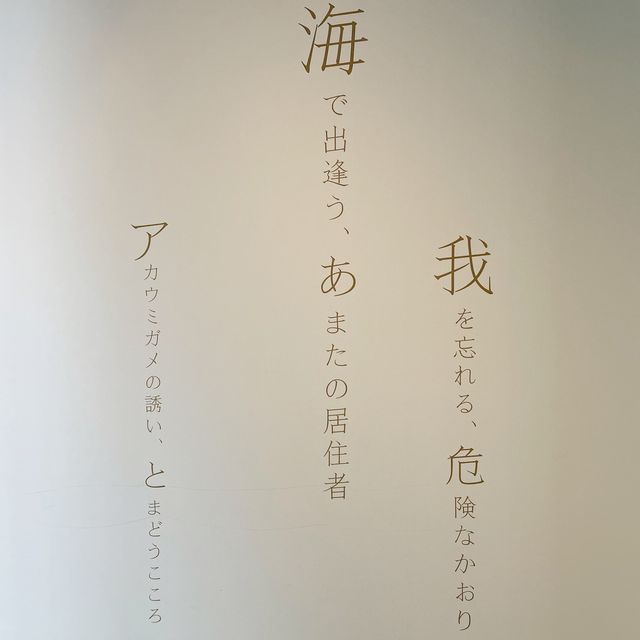 我を忘れる、危険なかおり
海で出逢う、あまたの居住者
アカウミガメの誘い、とまどうこころ